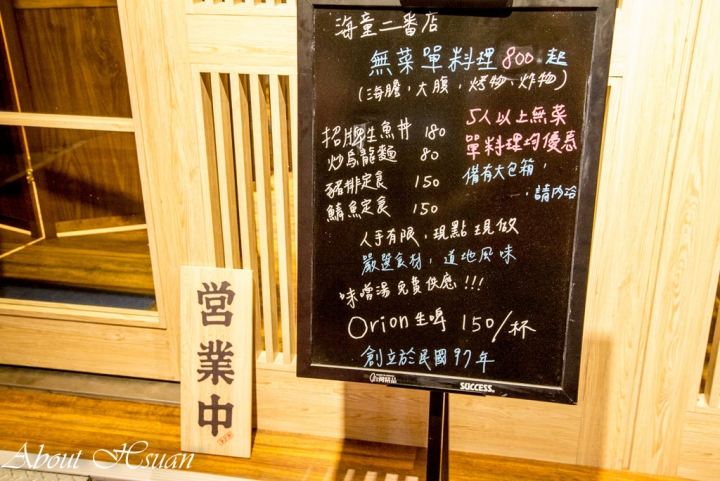 海童二番店
無菜單料理 800 起
(海膽，大腹，烤物、炸物)
招牌生魚丼 180
炒烏龍麵 80
豬排定食 150
鯖魚定食 150
5人以上無菜
單料理均優惠
備有大包箱，
請內洽
人手有限，現點現做
嚴選食材，道地風味
味噌湯免費供應!!!
Orion生啤 150/杯
創立於民國97年
SUCCESS.
営業中
About Hsuan